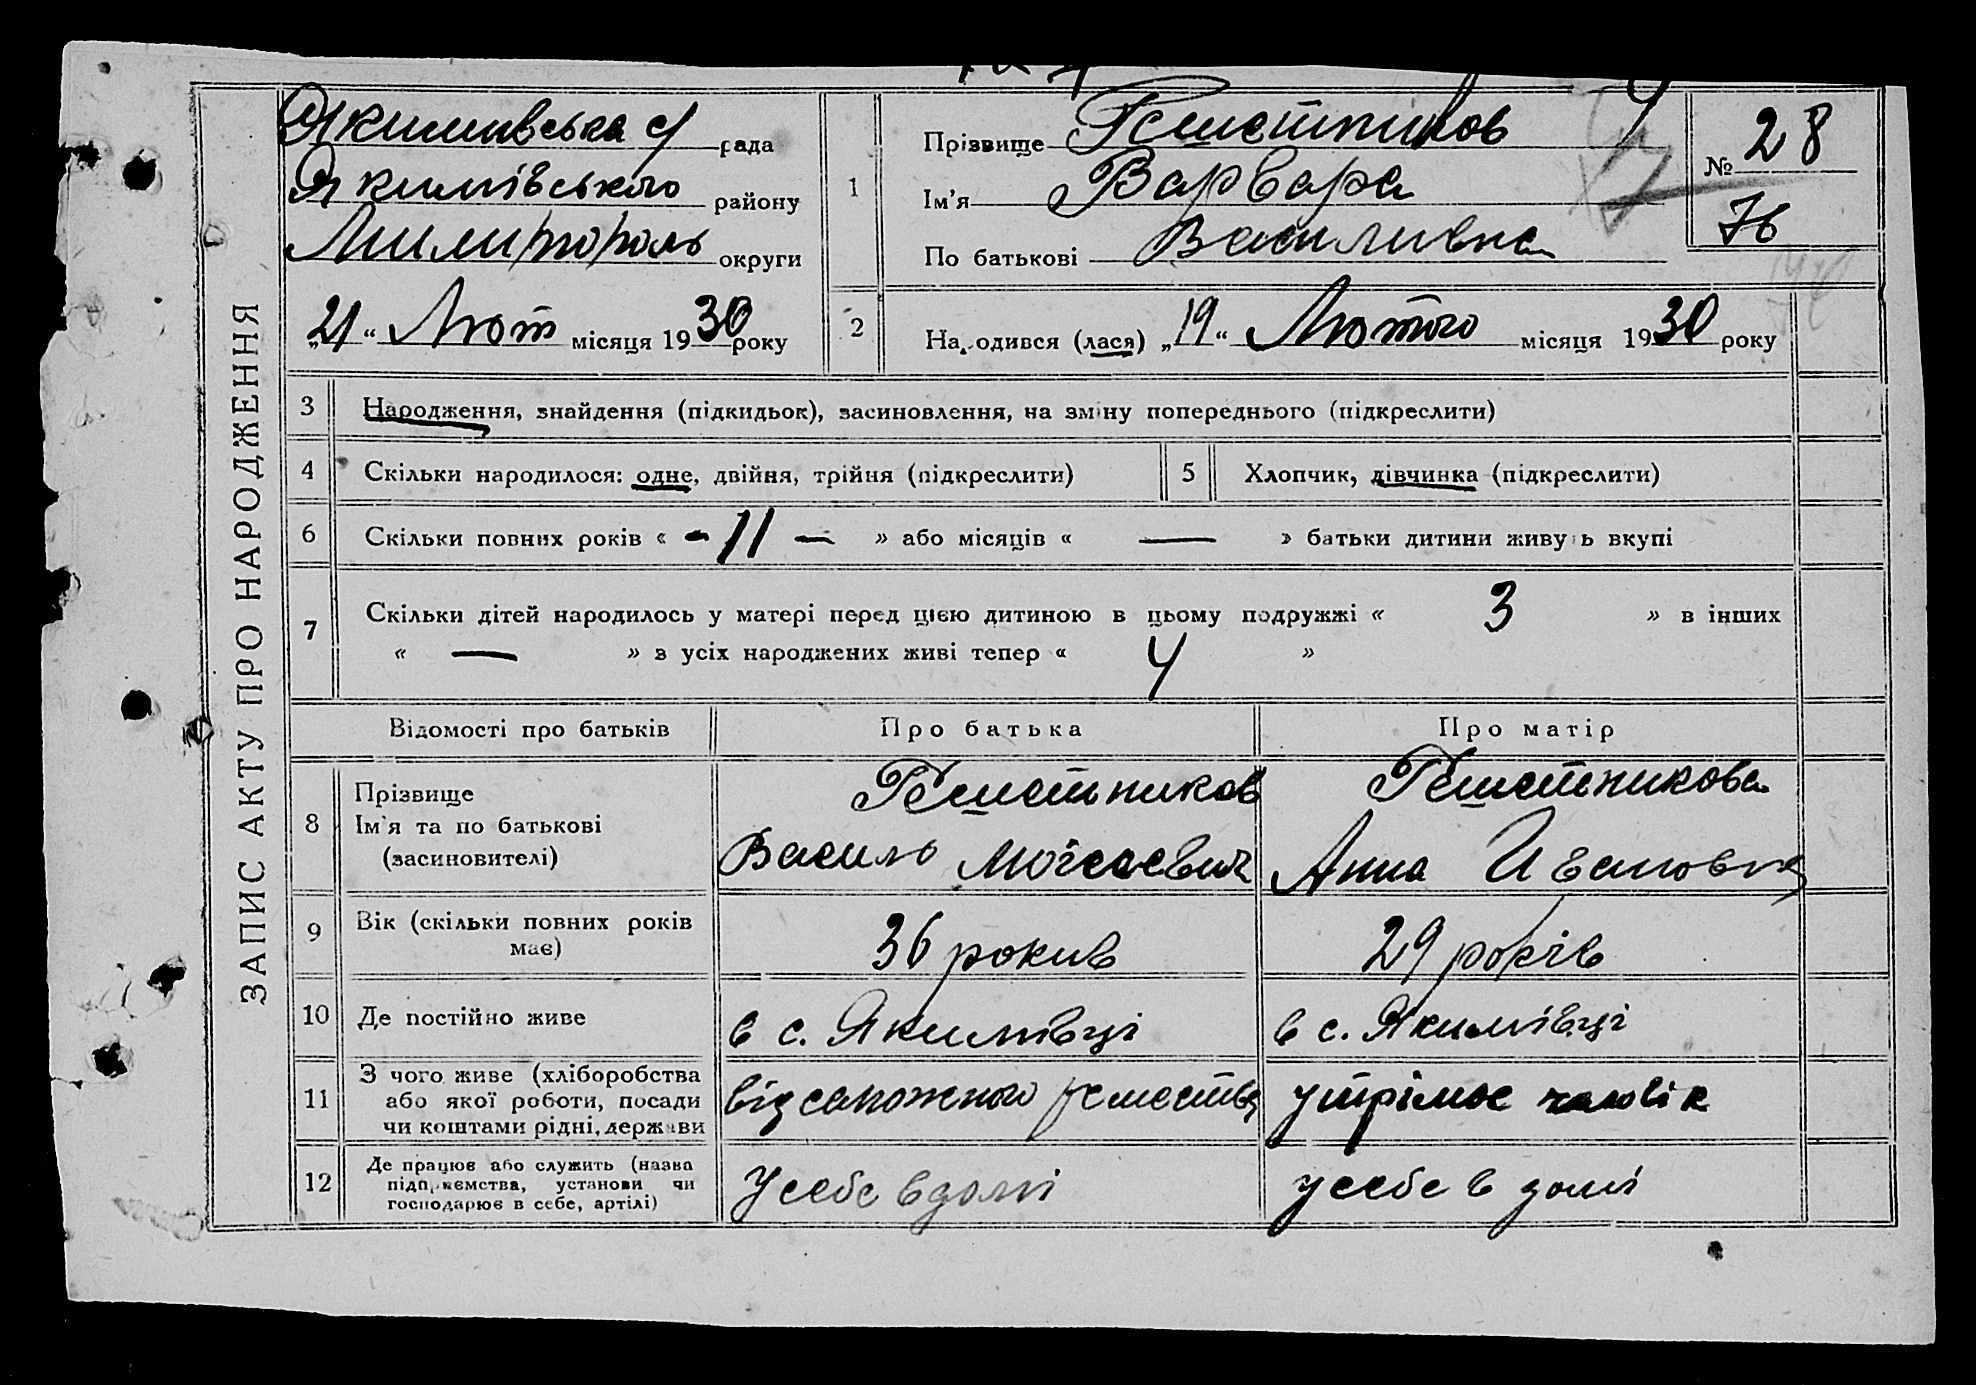 ЗАПИС АКТУ ПРО НАРОДЖЕННЯ
Якимивська с/рада
Якимівського району
Милитополь округи
„21“ Лют місяця 1930 року
1
Прізвище Решетників
Ім’я Варвара
По батькові Василивна
№ 28
76
2
Народився (лася) „19“ Лютого місяця 1930 року
3 Народження, знайдення (підкидьок), засиновлення, на зміну попереднього (підкреслити)
4 Скільки народилося: одне, двійня, трійня (підкреслити)
5 Хлопчик, дівчинка (підкреслити)
6 Скільки повних років « - 11 — » або місяців « — » батьки дитини живуть вкупі
7 Скільки дітей народилось у матері перед цією дитиною в цьому подружжі « 3 » в інших
« — » з усіх народжених живі тепер « 4 »
Відомості про батьків
Про батька
Про матір
8 Прізвище
Ім’я та по батькові
(засиновителі)
Решетников
Василь Мойсаєвич
Решетникова
Анна Ивановна
9 Вік (скільки повних років
має)
36 рокив
29 років
10 Де постійно живе
в с. Якимівці
в с. Якимівці
11 З чого живе (хліборобства
або якої роботи, посади
чи коштами рідні, держави
від сапожного ремества
утрімає чаловік
12 Де працює або служить (назва
підприємства, установи чи
господарює в себе, артілі)
У себе в домі
у себе в домі